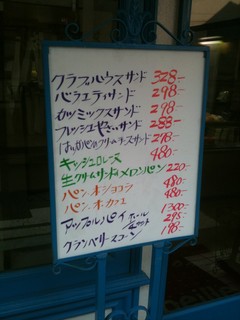 クラブハウスサンド 328-
バラエティサンド 298-
カツミックスサンド 298-
フレッシュやさいサンド 288-
はんかパのクリームチーズサンド 298-
キッシュロレーヌ 480-
生クリームサンドのメロンパン 220-
パン・オ・ショコラ 480-
パン・オ・カフェ 480-
アップルパイ ホール 1300-
1/4カット 295-
クランベリースコーン 198-